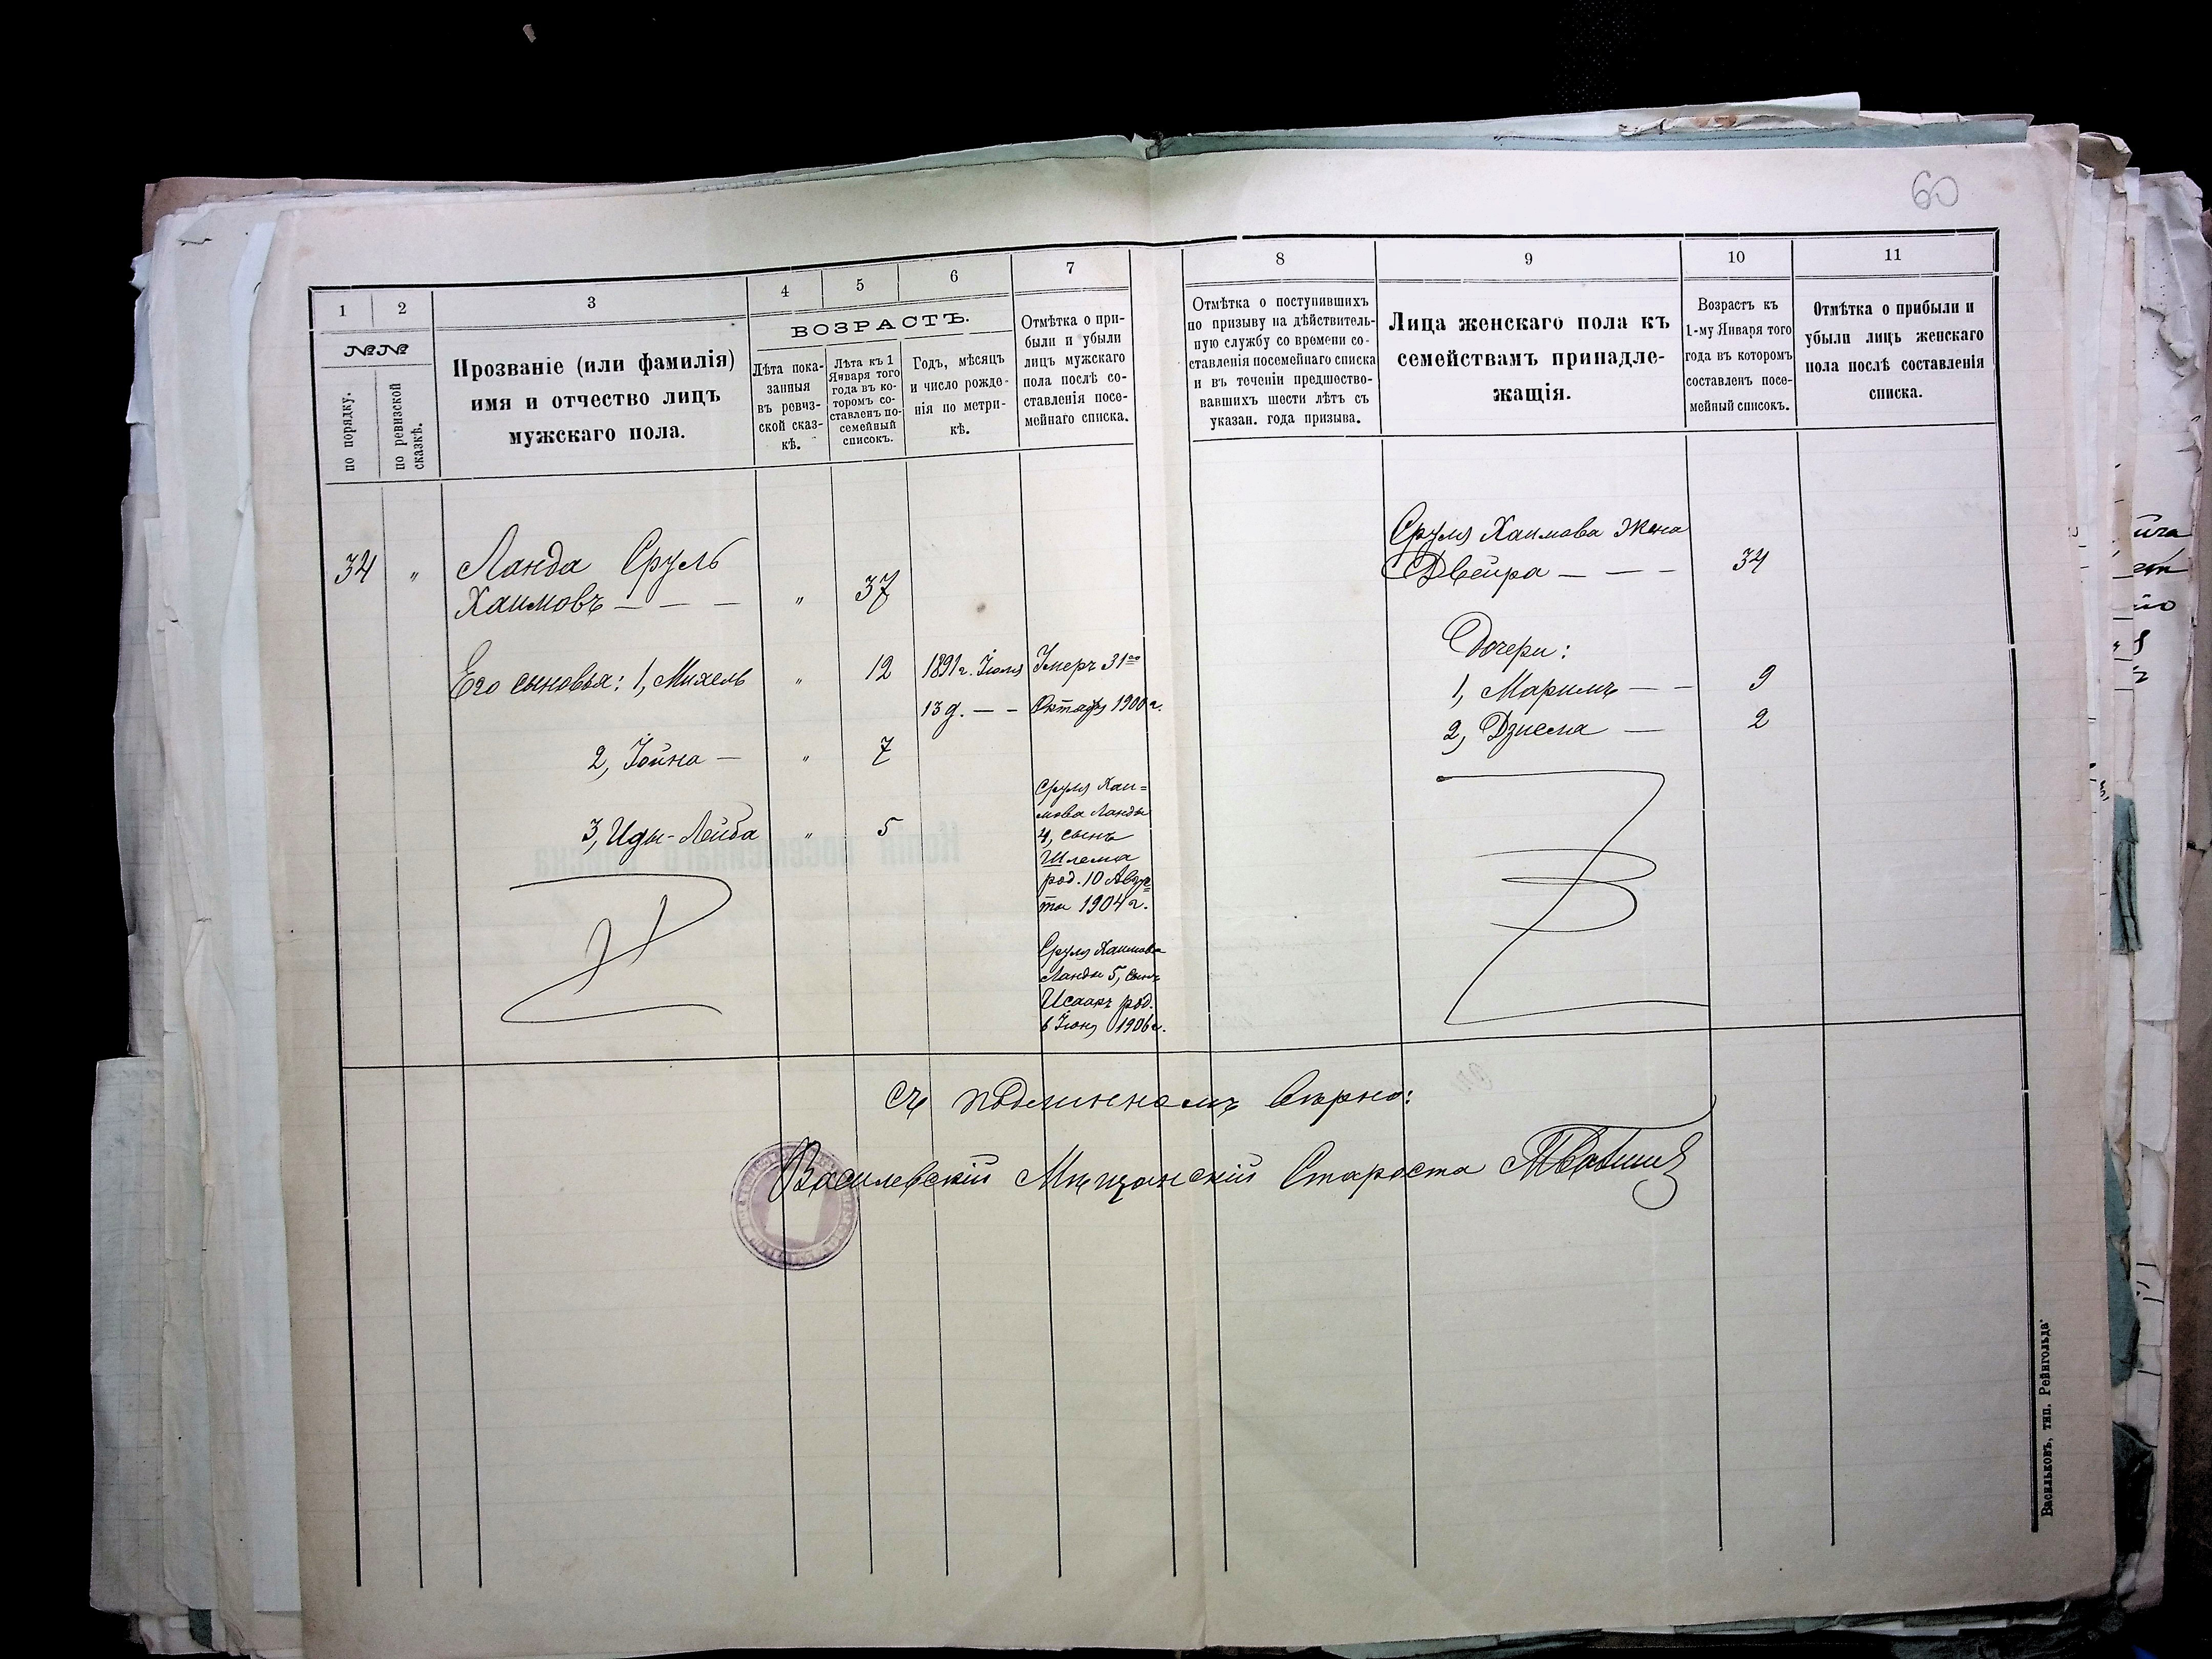 60
1
2
3
4
5
6
7
8
9
10
11
№№
по порядку.
по ревизской сказкѣ.
Прозваніе (или фамилія)
имя и отчество лицъ
мужскаго пола.
ВОЗРАСТЪ.
Лѣта пока-
занныя
въ ревиз-
ской сказ-
кѣ.
Лѣта къ 1
Января того
года въ ко-
торомъ со-
ставленъ по-
семейный
списокъ.
Годъ, мѣсяцъ
и число рожде-
нія по метри-
кѣ.
Отмѣтка о при-
были и убыли
лицъ мужскаго
пола послѣ со-
ставленія посе-
мейнаго списка.
Отмѣтка о поступившихъ
по призыву на дѣйствитель-
ную службу со времени со-
ставленія посемейнаго списка
и въ теченіи предшество-
вавшихъ шести лѣтъ съ
указан. года призыва.
Лица женскаго пола къ
семействамъ принадле-
жащія.
Возрастъ къ
1-му Января того
года въ которомъ
составленъ посе-
мейный списокъ.
Отмѣтка о прибыли и
убыли лицъ женскаго
пола послѣ составленія
списка.
34 " Ланда Сруль
Хаимовъ — — — " 37
Его сыновья: 1, Михель " 12 1891 г. Іюля Умеръ 31го
13 д. — — Октября 1900 г.
2, Іойна — " 7
3, Иды-Лейба " 5
Сруля Хаи=
мова Ланды
4, сынъ
Шлема
род. 10 Авгус=
та 1904 г.
Сруля Хаимова
Ланды 5, сынъ
Исаакъ род.
6 Іюня 1906 г.
Сруля Хаимова Жена
Двейра — — — 34
Дочери:
1, Маримъ — — 9
2, Дзисля — 2
Съ подлиннымъ вѣрно:
Василевскій Мѣщанскій Староста
Васильковъ, тип. Рейнгольда.